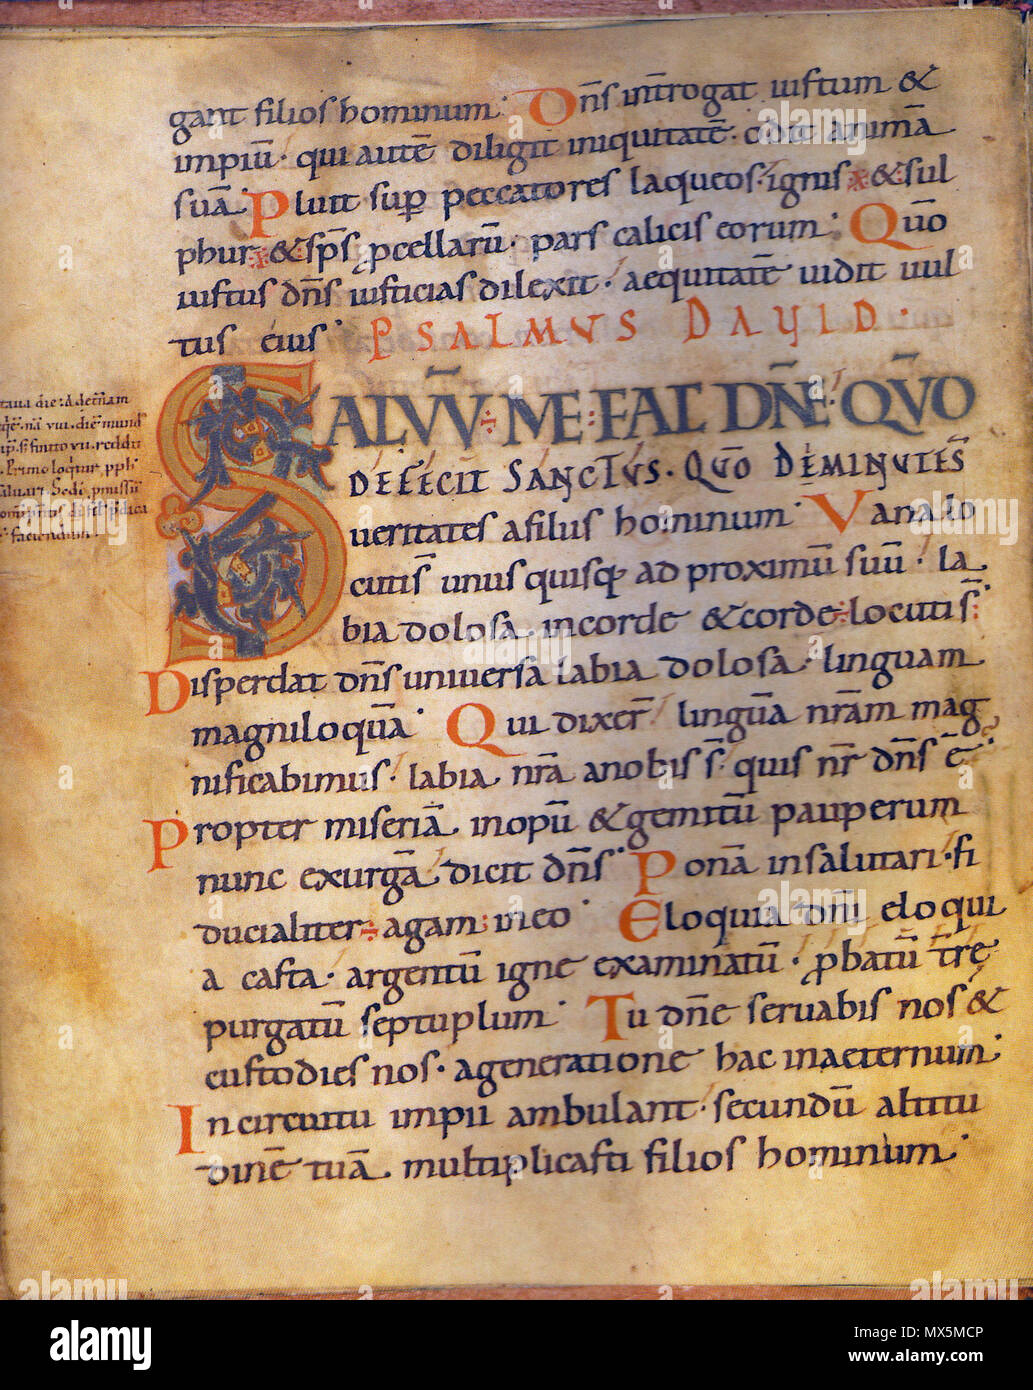 gant filios hominum. Dn̄s int̄rogat iustum &
impiū. qui autē diligit iniquitatē. odit animā
suā. Pluit sup̄ peccatores laqueos. ignis & sul
phur. & sp̄s p̱cellarū. pars calicis eorum. Qūo
iustus dn̄s iusticias dilexit. aequitatē uidit uul
tus eius. PSALMVS DAVID.
SALVV̄ ME FAC DN̄E. QV̄O
DEFECIT SANCTVS. QV̄O DEMINVTE S̄
ueritates afilius hominum. Vana lo
cuti s̄ unus quisq; ad proximū suū. la
bia dolosa incorde & corde locuti s̄.
Disperdat dn̄s uniuersa labia dolosa. linguam
magniloq̄ua. Qui dixer̄ linguā nr̄am mag
nificabimus. labia nr̄a anobis s̄. quis nr̄ dn̄s ē.
Propter miseriā inopū & gemitū pauperum
nunc exurgā dicit dn̄s. Ponā insalutari. fi
ducialiter agam ineo. Eloquia dn̄i eloqui
a casta. argentū igne examinatū. p̱batū t̄rę
purgatū septuplum. Tu dn̄e seruabis nos &
custodies nos. ageneratione hac inaeternum.
Incircuitu impii ambulant. secundū altitu
dinē tuā multiplicasti filios hominum.
alamy
Image ID: MX5MCP
www.alamy.com